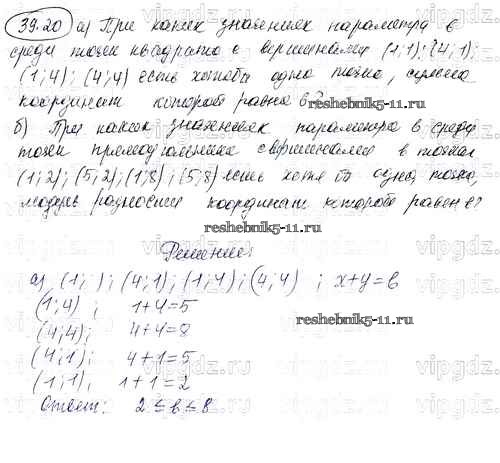 39.20 а) При каких значениях параметра в
среди точек квадрата с вершинами (1;1); (4;1);
(1;4); (4;4) есть хотя бы одна точка, сумма
координат которой равна в?
reshebnik5-11.ru
б) При каких значениях параметра в среди
точек прямоугольника с вершинами в точках
(1;2); (5;2); (1;8); (5;8) есть хотя бы одна точка,
модуль разности координат которой равен в?
reshebnik5-11.ru
Решение:
а) (1; ); (4;1); (1;4); (4;4) ; x+y=в
(1;4) ; 1+4=5
reshebnik5-11.ru
(4;4); 4+4=8
(4;1); 4+1=5
(1;1); 1+1=2
Ответ: 2 ≤ в ≤ 8
vipgdz.ru